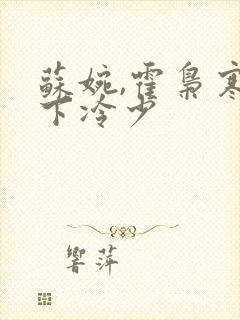 蘇婉,霍梟寒
下冷少
響萍